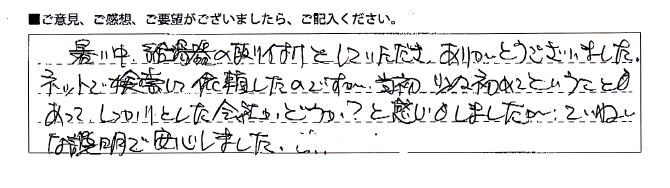 ■ご意見、ご感想、ご要望がございましたら、ご記入ください。
暑い中、給湯器の取り付けをしていただき、ありがとうございました。
ネットで検索して依頼したのですが、当初、初めてということも
あって、しっかりとした会社かどうか?と感じもしましたが、ていねい
な説明で安心しました。